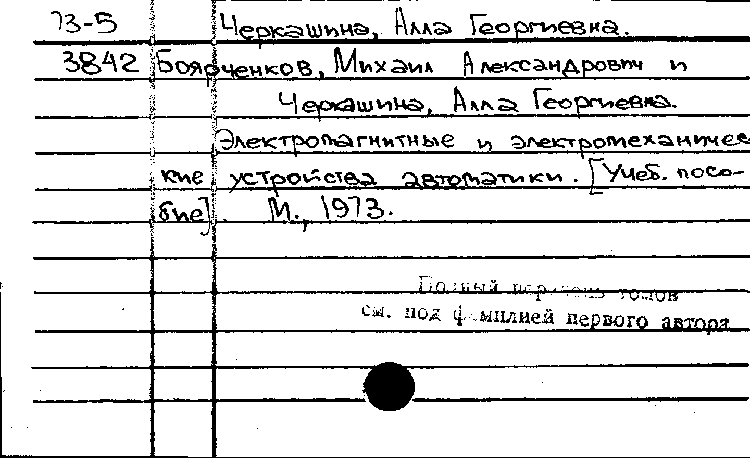 73-5 Черкашина, Алла Георгиевна.
3842 Боярченков, Михаил Александрович и
Черкашина, Алла Георгиевна.
Электромагнитные и электромеханичес
кие устройства автоматики. [Учеб. посо-
бие]. М., 1973.
Полный перечень томов
см. под фамилией первого автора